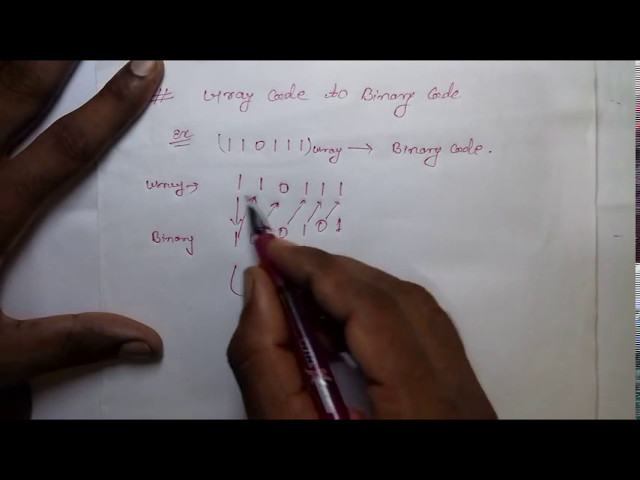 # Gray Code to Binary Code
Ex (110111)Gray → Binary Code.
Gray → 1 1 0 1 1 1
Binary 1 0 1 0 1
(